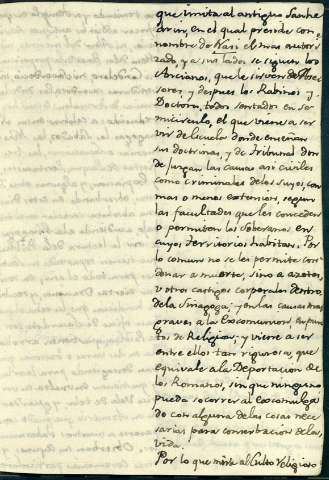 que imita al antiguo Sanhe
drin, en el qual preside con
nombre de Nasi el mas autori
zado, y a sus lados se siguen los
Ancianos, que le sirven de Ase
sores, y despues los Rabinos y
Doctores, todos sentados en se
micirculo, el que viene a ser
vir de Escuela donde enseñan
sus doctrinas, y de tribunal don
de juzgan las causas asi civiles
como criminales de los suyos, con
mas o menos extension, segun
las facultades que les conceden
o permiten los Soberanos en
cuyos territorios habitan. Por
lo comun no se les permite con
denar a muerte, sino a azotes,
u otros castigos corporales dentro
de la Sinagoga; y en las causas mas
graves a la Excomunion, en pun
tos de Religion; y viene a ser
entre ellos tan rigurosa, que
equivale a la Deportacion de
los Romanos, sin que ninguno
pueda socorrer al excomulga
do con alguna de las cosas nece
sarias para conservacion de la
vida.
Por lo que mira al Culto religioso